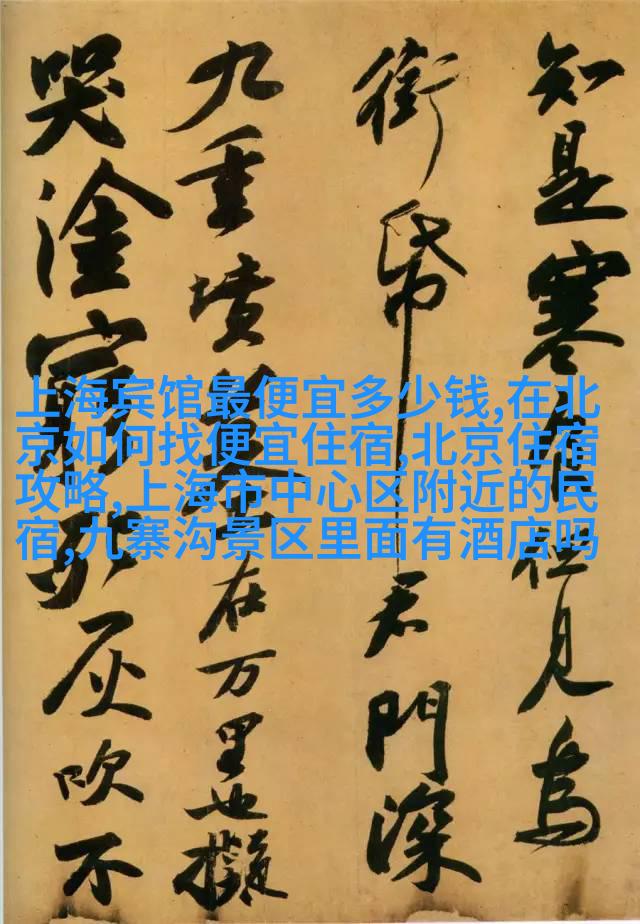 知是寒食但見烏
銜帋君門深
九重墳墓在万里也擬
哭塗窮死灰吹不
上海宾馆最便宜多少钱,在北
京如何找便宜住宿,北京住宿
攻略,上海市中心区附近的民
宿,九寨沟景区里面有酒店吗